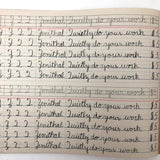 2 2 2 Jonithal Quietly do your work
2 2 2 Jonithal Quietly do your work
2 2 2 Jonithal Quietly do your work
2 2 2 Jonithal Quietly do your work
2 2 2 Jonithal Quietly do your work
2 2 2 Jonithal Quietly do your work
2 2 2 Jonithal Quietly do your work
2 2 2 Jonithal Quietly do your work
2 2 2 Jonithal Quietly do your work
2 2 2 Jonithal Quietly do your work